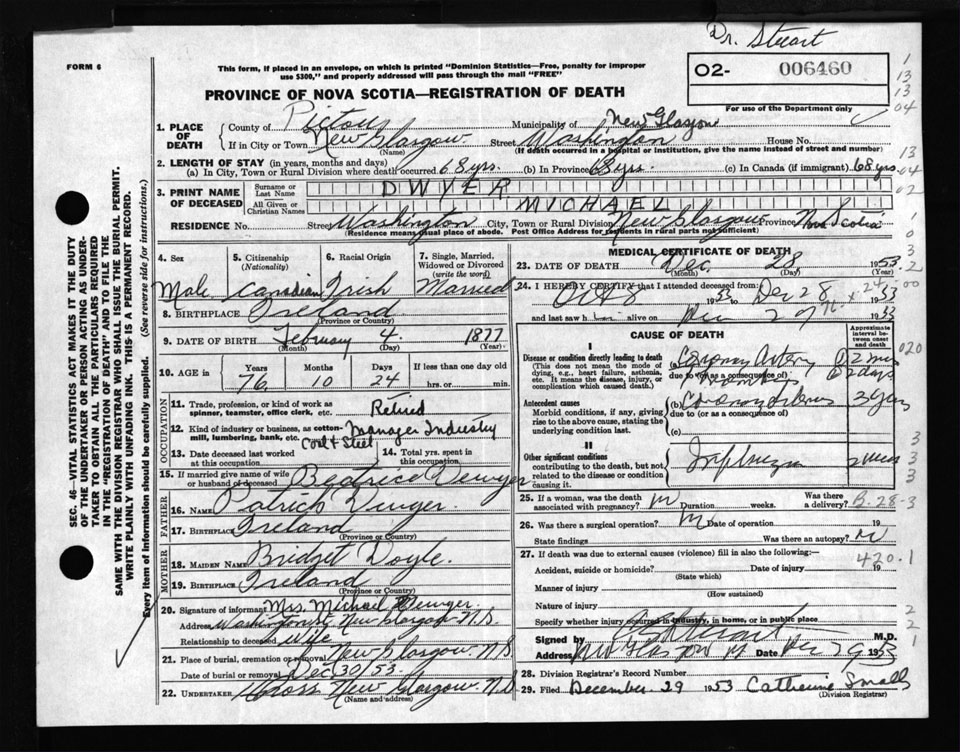 Dr. Stewart
FORM 6
This form, if placed in an envelope, on which is printed "Dominion Statistics—Free, penalty for improper
use $300," and properly addressed will pass through the mail "FREE"
O2- 006460
For use of the Department only
PROVINCE OF NOVA SCOTIA—REGISTRATION OF DEATH
1. PLACE OF DEATH
County of Pictou Municipality of New Glasgow
If in City or Town New Glasgow Street Washington House No.
(Name) (If death occurred in a hospital or institution, give the name instead of street and number)
2. LENGTH OF STAY (in years, months and days)
(a) In City, Town or Rural Division where death occurred 68 yrs. (b) In Province 68 yrs (c) In Canada (if immigrant) 68 yrs
3. PRINT NAME OF DECEASED
Surname or Last Name DWYER
All Given or Christian Names MICHAEL
RESIDENCE No. Street Washington City, Town or Rural Division New Glasgow Province Nova Scotia
(Residence means usual place of abode. Post Office Address for residents in rural parts not sufficient)
4. Sex
Male
5. Citizenship
(Nationality)
Canadian
6. Racial Origin
Irish
7. Single, Married,
Widowed or Divorced
(write the word)
Married
8. BIRTHPLACE Ireland
(Province or Country)
9. DATE OF BIRTH February 4 1877
(Month) (Day) (Year)
10. AGE in
Years Months Days If less than one day old
76 10 24 hrs. or min.
OCCUPATION
11. Trade, profession, or kind of work as
spinner, teamster, office clerk, etc. Retired
12. Kind of industry or business, as cotton-
mill, lumbering, bank, etc. Manager Industry
Coal & Steel
13. Date deceased last worked
at this occupation
14. Total yrs. spent in
this occupation
15. If married give name of wife
or husband of deceased Beatrice Dwyer
FATHER
16. NAME Patrick Dwyer
17. BIRTHPLACE Ireland
(Province or Country)
MOTHER
18. MAIDEN NAME Bridget Doyle
19. BIRTHPLACE Ireland
(Province or Country)
20. Signature of informant Mrs. Michael Dwyer
Address Washington St New Glasgow N.S.
Relationship to deceased Wife
21. Place of burial, cremation or removal New Glasgow N.S
Date of burial or removal Dec 30/53
22. UNDERTAKER New Glasgow N.S
(Name and address)
MEDICAL CERTIFICATE OF DEATH
23. DATE OF DEATH Dec. 28 1953
(Month) (Day) (Year)
24. I HEREBY CERTIFY that I attended deceased from:
Oct 8 1953 to Dec 28 1953
and last saw him alive on Dec 27 1953
CAUSE OF DEATH
Approximate interval between onset and death
I
Disease or condition directly leading to death
(This does not mean the mode of
dying, e.g., heart failure, asthenia,
etc. It means the disease, injury, or
complication which caused death.)
(a) Coronary Artery
due to (or as a consequence of)
Antecedent causes
Morbid conditions, if any, giving
rise to the above cause, stating the
underlying condition last.
(b)
due to (or as a consequence of)
(c)
II
Other significant conditions
contributing to the death, but not
related to the disease or condition
causing it.
Influenza
25. If a woman, was the death
associated with pregnancy? Duration weeks. Was there a delivery?
B-28-3
26. Was there a surgical operation? Date of operation 19
State findings Was there an autopsy?
27. If death was due to external causes (violence) fill in also the following:
420.1
Accident, suicide or homicide? Date of injury 19
(State which)
Manner of injury
(How sustained)
Nature of injury
Specify whether injury occurred in industry, in home, or in public place
Signed by M.D.
Address New Glasgow Date Dec 29 1953
28. Division Registrar's Record Number
29. Filed December 29 1953 Catherine Smalls
(Division Registrar)
SEC. 46 - VITAL STATISTICS ACT MAKES IT THE DUTY
OF THE UNDERTAKER OR PERSON ACTING AS UNDER-
TAKER TO OBTAIN ALL THE PARTICULARS REQUIRED
IN THE "REGISTRATION OF DEATH" AND TO FILE THE
SAME WITH THE DIVISION REGISTRAR WHO SHALL ISSUE THE BURIAL PERMIT.
WRITE PLAINLY WITH UNFADING INK. THIS IS A PERMANENT RECORD.
Every item of information should be carefully supplied. (See reverse side for instructions.)